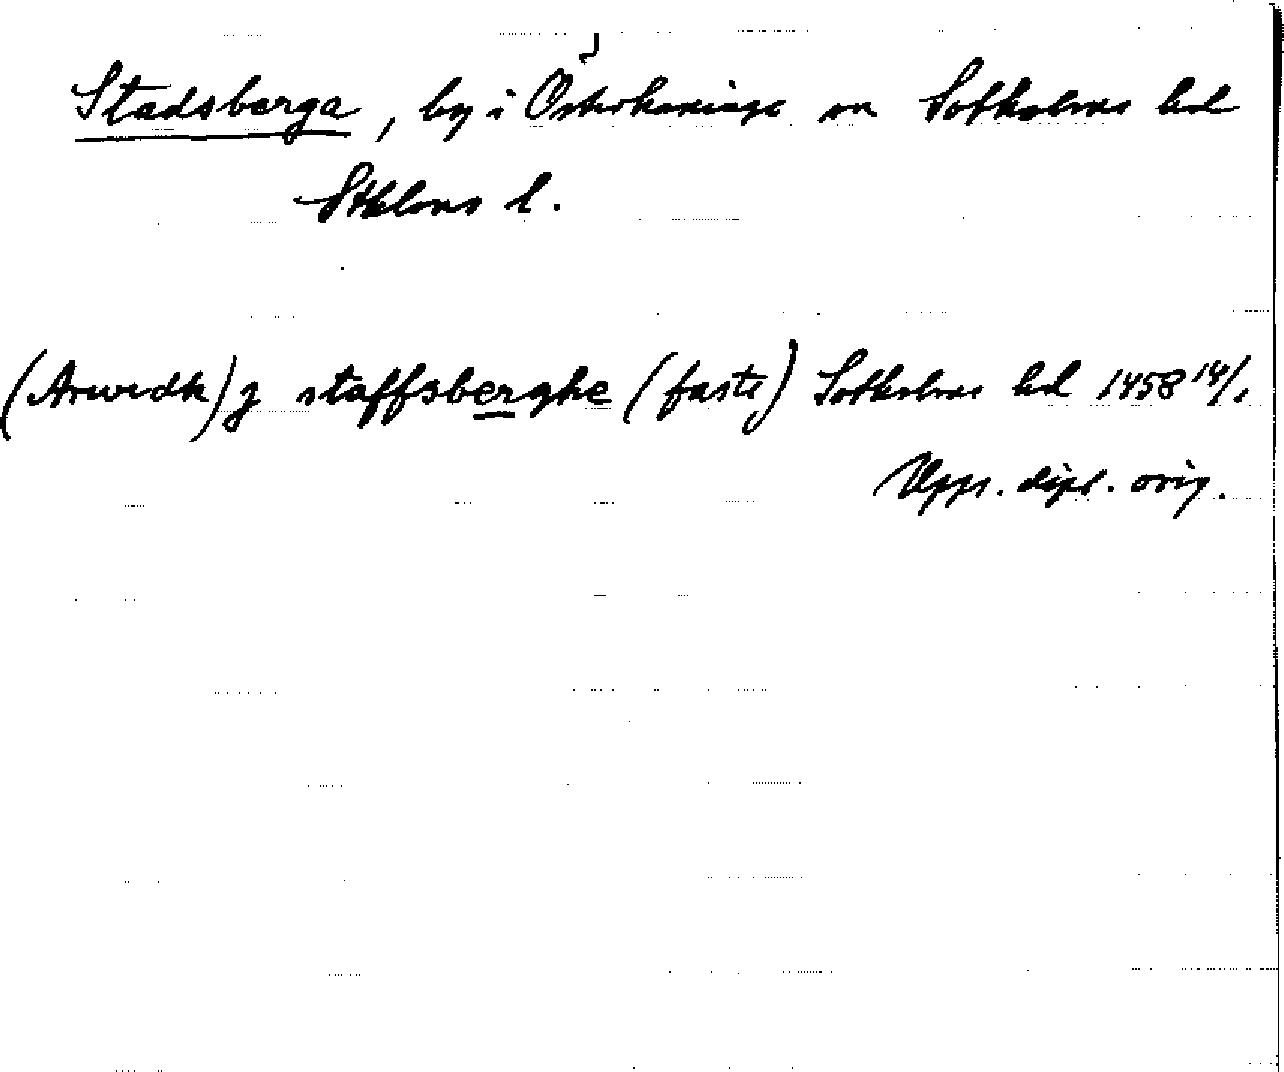 Stadsberga, by i Österhaninge sn Sotholms hd
Sthlms l.
(Arwedh) j staffsberghe (faste) Sotholms hd 1458 14/1
Upps. dipl. orig.